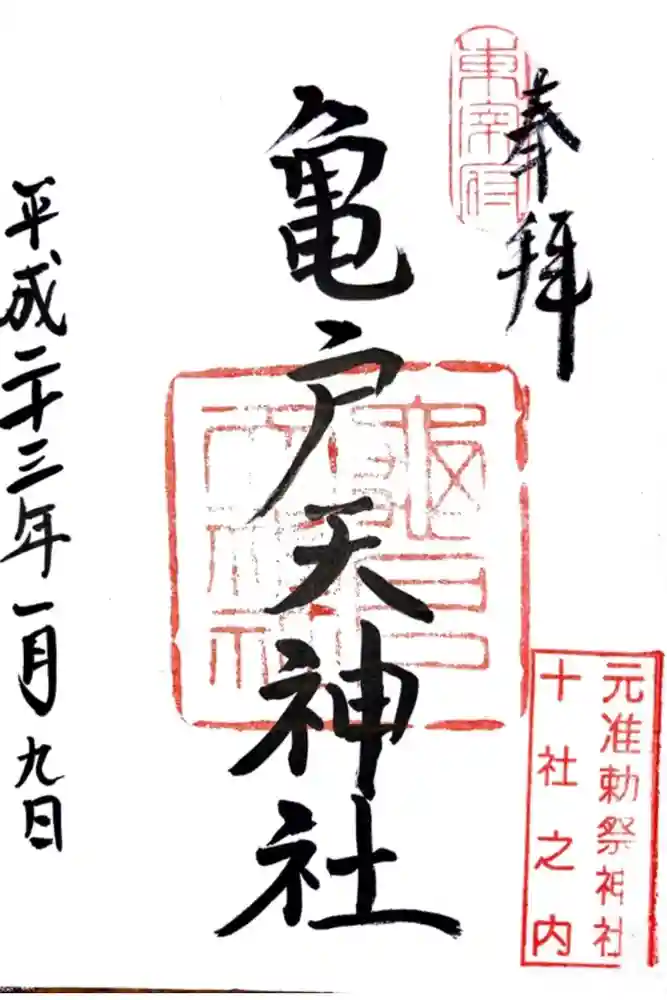 奉拝
東宰府
亀戸天神社
平成二十三年一月九日
元准勅祭神社
十社之内